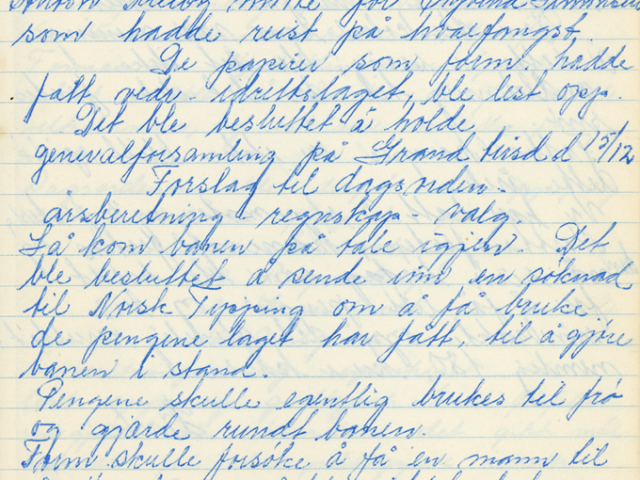 møtte for
som hadde reist på hvalfangst.
De papirer som form. hadde
fått vedr. idrettslaget, ble lest opp.
Det ble besluttet å holde
generalforsamling på Grand tirsd d 15/12
Forslag til dagsorden -
årsberetning - regnskap - valg.
Så kom banen på tale igjen. Det
ble besluttet å sende inn en søknad
til Norsk Tipping om å få bruke
de pengene laget har fått, til å gjøre
banen i stand.
Pengene skulle egentlig brukes til frø
og gjærde rundt banen.
Form. skulle forsøke å få en mann til